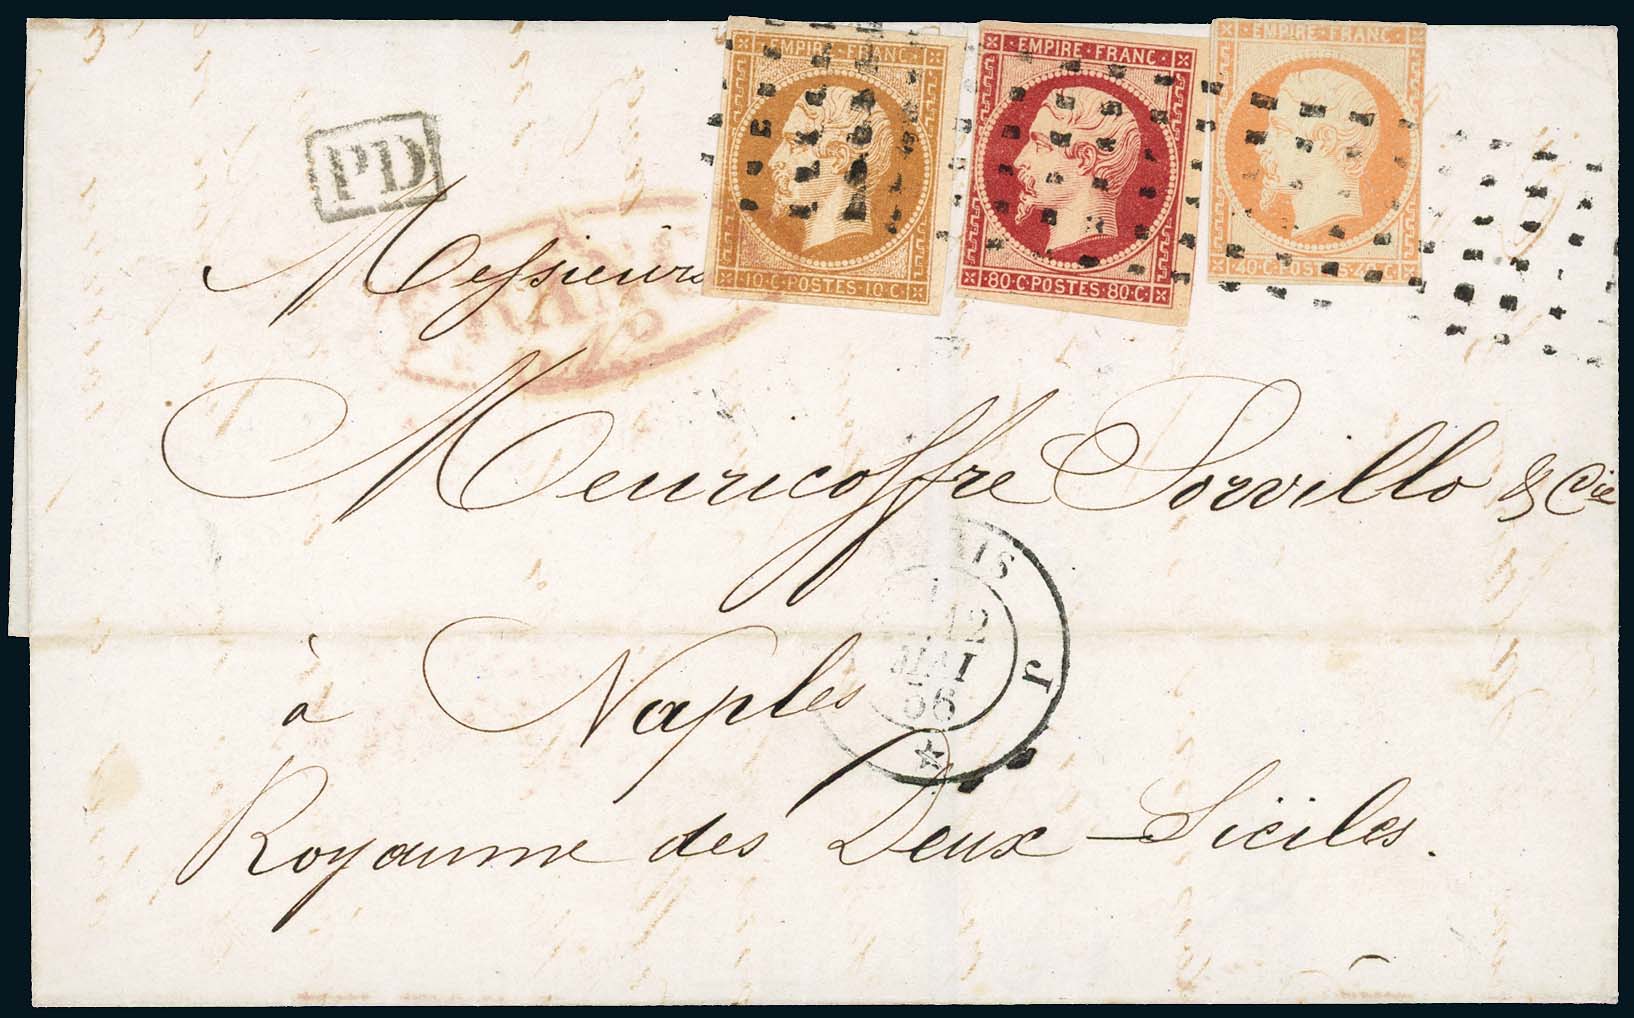 EMPIRE·FRANC·
10·C·POSTES·10·C·
EMPIRE·FRANC·
80·C·POSTES·80·C·
EMPIRE·FRANC·
40·C·POSTES·40·C·
PD
Messieurs
Meuricoffre Sorvillo & Cie
à Naples
Royaume des Deux-Siciles.
PARIS
12
MAI
56
J